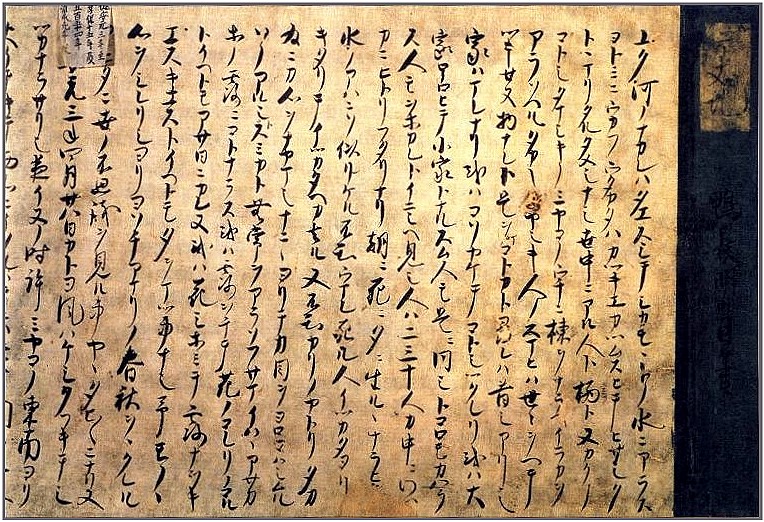 ユク河ノナカレハタエスシテシカモヽトノ水ニアラス
ヨトミニウカフウタカタハカツキエカツムスヒテヒサシク
トヽマリタルタメシナシ世中ニアル人ト栖ト又カクノコ
トシタマシキノミヤコノウチニ棟ヲナラヘイラカヲ
アラソヘルタカキイヤシキ人ノスマヒハ世々ヲヘテ
ツキセヌ物ナレト是ヲマコトカト尋レハ昔シアリシ
家ハマレナリ或ハコソヤケテコトシツクレリ或ハ大
家ホロヒテ小家トナルスム人モ是ニ同シトコロモカハラ
ス人モヲホカレトイニシヘ見シ人ハ二三十人カ中ニワツ
カニヒトリフタリナリ朝ニ死ニ夕ニ生ルヽナラヒ
水ノアハニソ似リケル不知ウマレ死ル人イツカタヨリ
キタリテイツカタヘカ去ル又不知カリノヤトリタカ
為ニカ心ヲナヤマシナニヽヨリテカ目ヲヨロコハシムル
ソノアルシトスミカト無常ヲアラソフサマイハヽアサカ
ホノ露ニコトナラス或ハ露ヲチテ花ノコレリノコル
トイヘトモアサ日ニカレヌ或ハ花シホミテ露ナヲキ
エスキエストイヘトモ夕ヲマツ事ナシ予モノヽ
心ヲシレリシヨリヨソチアマリノ春秋ヲヽクレル
タニ世ノ不思議ヲ見ル事ヤヽタヒヽヽニナリヌ
元三年四月廿八日カトヨ風ハケシクフキテシ
ツカナラサリシ夜イヌノ時許ミヤコノ東南ヨリ